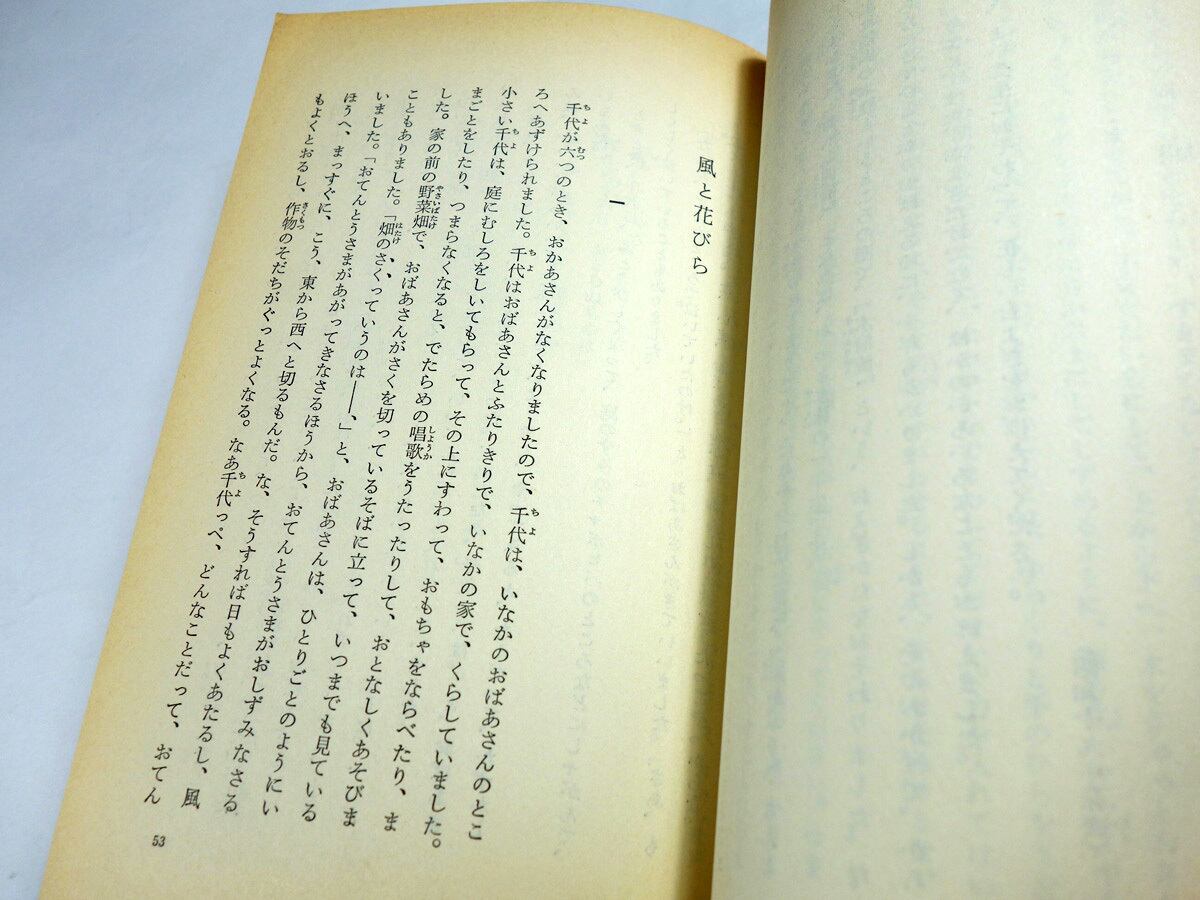 風と花びら
一
千代が六つのとき、おかあさんがなくなりましたので、千代は、いなかのおばあさんのとこ
ろへあずけられました。千代はおばあさんとふたりきりで、いなかの家で、くらしていました。
小さい千代は、庭にむしろをしいてもらって、その上にすわって、おもちゃをならべたり、ま
まごとをしたり、つまらなくなると、でたらめの唱歌をうたったりして、おとなしくあそびま
した。家の前の野菜畑で、おばあさんがさくを切っているそばに立って、いつまでも見ている
こともありました。「畑のさくっていうのは――、」と、おばあさんは、ひとりごとのようにい
いました。「おてんとうさまがあがってきなさるほうから、おてんとうさまがおしずみなさる
ほうへ、まっすぐに、こう、東から西へと切るもんだ。な、そうすれば日もよくあたるし、風
もよくとおるし、作物のそだちがぐっとよくなる。なあ千代っぺ、どんなことだって、おてん
53